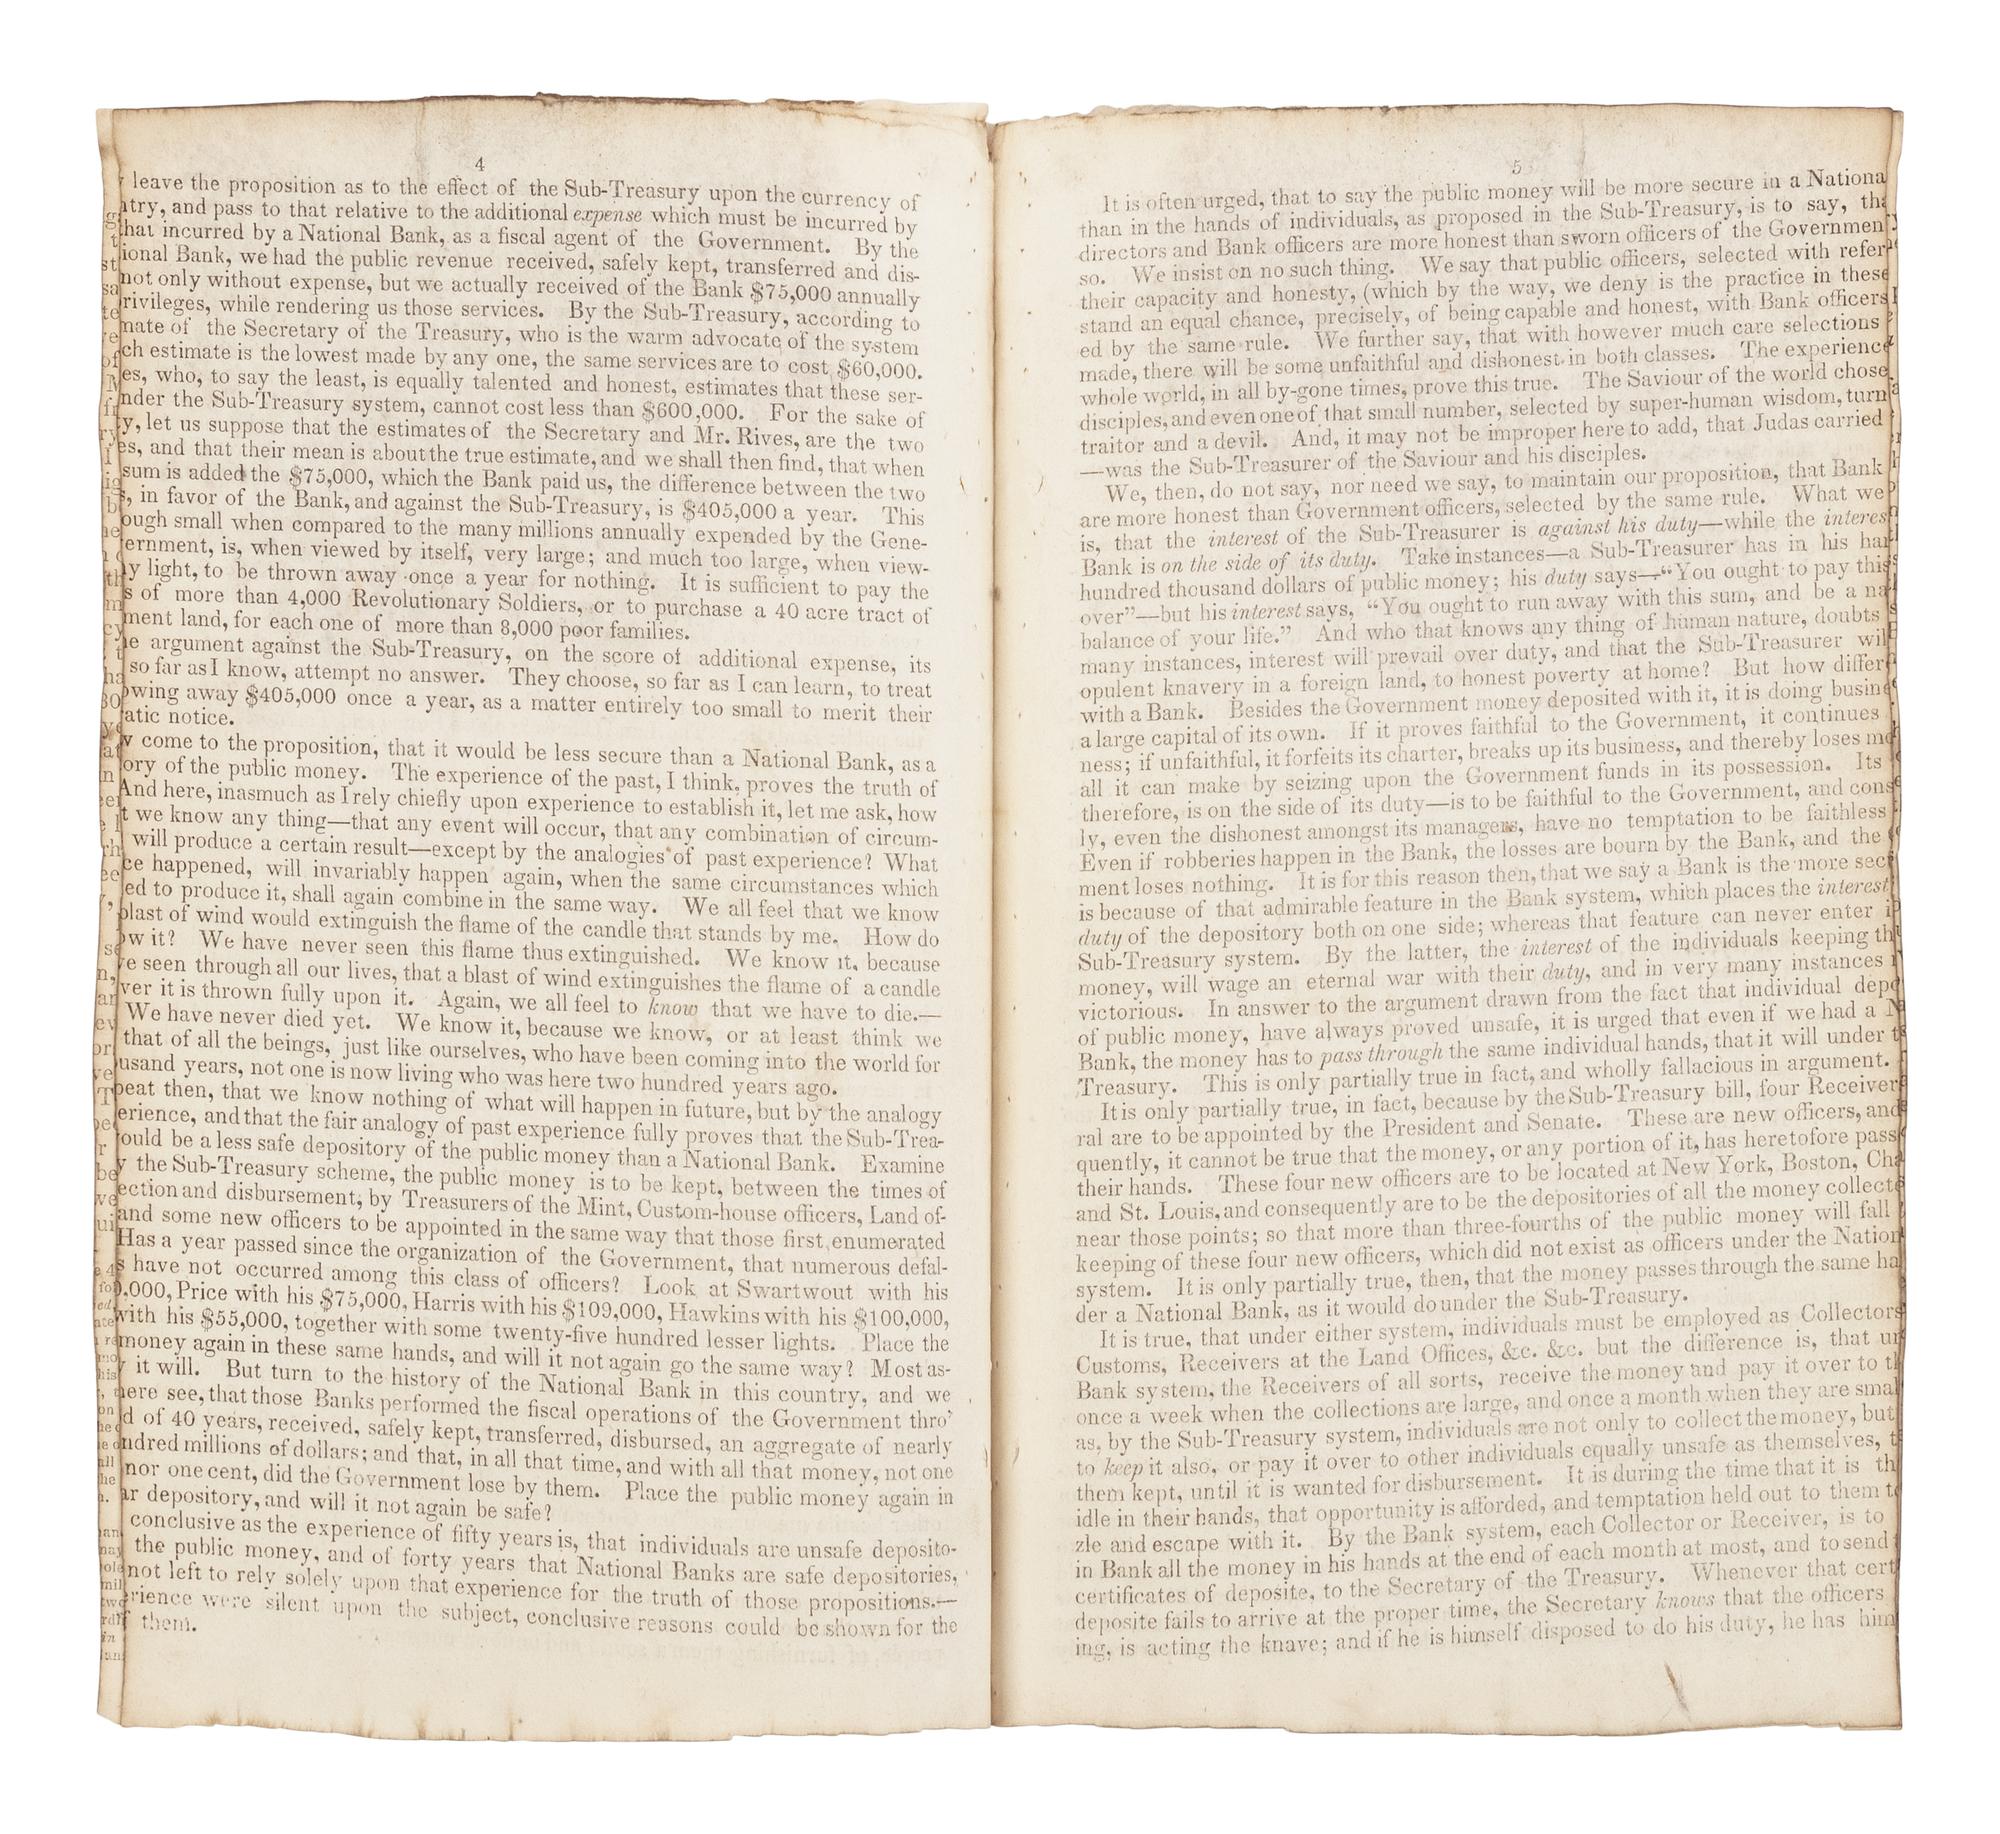 4
leave the proposition as to the effect of the Sub-Treasury upon the currency of
ntry, and pass to that relative to the additional expense which must be incurred by
that incurred by a National Bank, as a fiscal agent of the Government. By the
ional Bank, we had the public revenue received, safely kept, transferred and dis-
not only without expense, but we actually received of the Bank $75,000 annually
rivileges, while rendering us those services. By the Sub-Treasury, according to
mate of the Secretary of the Treasury, who is the warm advocate of the system
ch estimate is the lowest made by any one, the same services are to cost $60,000.
es, who, to say the least, is equally talented and honest, estimates that these ser-
nder the Sub-Treasury system, cannot cost less than $600,000. For the sake of
y, let us suppose that the estimates of the Secretary and Mr. Rives, are the two
es, and that their mean is about the true estimate, and we shall then find, that when
sum is added the $75,000, which the Bank paid us, the difference between the two
s, in favor of the Bank, and against the Sub-Treasury, is $405,000 a year. This
ough small when compared to the many millions annually expended by the Gene-
ernment, is, when viewed by itself, very large; and much too large, when view-
y light, to be thrown away once a year for nothing. It is sufficient to pay the
s of more than 4,000 Revolutionary Soldiers, or to purchase a 40 acre tract of
ment land, for each one of more than 8,000 poor families.
e argument against the Sub-Treasury, on the score of additional expense, its
so far as I know, attempt no answer. They choose, so far as I can learn, to treat
owing away $405,000 once a year, as a matter entirely too small to merit their
atic notice.
w come to the proposition, that it would be less secure than a National Bank, as a
ory of the public money. The experience of the past, I think, proves the truth of
And here, inasmuch as I rely chiefly upon experience to establish it, let me ask, how
t we know any thing—that any event will occur, that any combination of circum-
will produce a certain result—except by the analogies of past experience? What
ce happened, will invariably happen again, when the same circumstances which
ed to produce it, shall again combine in the same way. We all feel that we know
blast of wind would extinguish the flame of the candle that stands by me. How do
ow it? We have never seen this flame thus extinguished. We know it, because
e seen through all our lives, that a blast of wind extinguishes the flame of a candle
ver it is thrown fully upon it. Again, we all feel to know that we have to die.—
We have never died yet. We know it, because we know, or at least think we
that of all the beings, just like ourselves, who have been coming into the world for
usand years, not one is now living who was here two hundred years ago.
peat then, that we know nothing of what will happen in future, but by the analogy
erience, and that the fair analogy of past experience fully proves that the Sub-Trea-
ould be a less safe depository of the public money than a National Bank. Examine
y the Sub-Treasury scheme, the public money is to be kept, between the times of
ection and disbursement, by Treasurers of the Mint, Custom-house officers, Land of-
and some new officers to be appointed in the same way that those first enumerated
Has a year passed since the organization of the Government, that numerous defal-
s have not occurred among this class of officers? Look at Swartwout with his
0,000, Price with his $75,000, Harris with his $109,000, Hawkins with his $100,000,
with his $55,000, together with some twenty-five hundred lesser lights. Place the
money again in these same hands, and will it not again go the same way? Most as-
y it will. But turn to the history of the National Bank in this country, and we
here see, that those Banks performed the fiscal operations of the Government thro'
d of 40 years, received, safely kept, transferred, disbursed, an aggregate of nearly
ndred millions of dollars; and that, in all that time, and with all that money, not one
nor one cent, did the Government lose by them. Place the public money again in
ar depository, and will it not again be safe?
conclusive as the experience of fifty years is, that individuals are unsafe deposito-
the public money, and of forty years that National Banks are safe depositories,
not left to rely solely upon that experience for the truth of those propositions.—
rience were silent upon the subject, conclusive reasons could be shown for the
f them.
5
It is often urged, that to say the public money will be more secure in a Nationa
than in the hands of individuals, as proposed in the Sub-Treasury, is to say, tha
directors and Bank officers are more honest than sworn officers of the Governmen
so. We insist on no such thing. We say that public officers, selected with refer
their capacity and honesty, (which by the way, we deny is the practice in these
stand an equal chance, precisely, of being capable and honest, with Bank officers
ed by the same rule. We further say, that with however much care selections
made, there will be some unfaithful and dishonest in both classes. The experience
whole world, in all by-gone times, prove this true. The Saviour of the world chose
disciples, and even one of that small number, selected by super-human wisdom, turn
traitor and a devil. And, it may not be improper here to add, that Judas carried
—was the Sub-Treasurer of the Saviour and his disciples.
We, then, do not say, nor need we say, to maintain our proposition, that Bank
are more honest than Government officers, selected by the same rule. What we
is, that the interest of the Sub-Treasurer is against his duty—while the interes
Bank is on the side of its duty. Take instances—a Sub-Treasurer has in his han
hundred thousand dollars of public money; his duty says—“You ought to pay this
over”—but his interest says, “You ought to run away with this sum, and be a na
balance of your life.” And who that knows any thing of human nature, doubts
many instances, interest will prevail over duty, and that the Sub-Treasurer wil
opulent knavery in a foreign land, to honest poverty at home? But how differ
with a Bank. Besides the Government money deposited with it, it is doing busine
a large capital of its own. If it proves faithful to the Government, it continues
ness; if unfaithful, it forfeits its charter, breaks up its business, and thereby loses mo
all it can make by seizing upon the Government funds in its possession. Its
therefore, is on the side of its duty—is to be faithful to the Government, and cons
ly, even the dishonest amongst its managers, have no temptation to be faithless
Even if robberies happen in the Bank, the losses are bourn by the Bank, and the
ment loses nothing. It is for this reason then, that we say a Bank is the more sec
is because of that admirable feature in the Bank system, which places the interest
duty of the depository both on one side; whereas that feature can never enter i
Sub-Treasury system. By the latter, the interest of the individuals keeping th
money, will wage an eternal war with their duty, and in very many instances
victorious. In answer to the argument drawn from the fact that individual depo
of public money, have always proved unsafe, it is urged that even if we had a N
Bank, the money has to pass through the same individual hands, that it will under t
Treasury. This is only partially true in fact, and wholly fallacious in argument.
It is only partially true, in fact, because by the Sub-Treasury bill, four Receiver
ral are to be appointed by the President and Senate. These are new officers, and
quently, it cannot be true that the money, or any portion of it, has heretofore pass
their hands. These four new officers are to be located at New York, Boston, Cha
and St. Louis, and consequently are to be the depositories of all the money collecte
near those points; so that more than three-fourths of the public money will fall
keeping of these four new officers, which did not exist as officers under the Nation
system. It is only partially true, then, that the money passes through the same ha
der a National Bank, as it would do under the Sub-Treasury.
It is true, that under either system, individuals must be employed as Collectors
Customs, Receivers at the Land Offices, &c. &c. but the difference is, that un
Bank system, the Receivers of all sorts, receive the money and pay it over to th
once a week when the collections are large, and once a month when they are smal
as, by the Sub-Treasury system, individuals are not only to collect the money, but
to keep it also, or pay it over to other individuals equally unsafe as themselves, t
them kept, until it is wanted for disbursement. It is during the time that it is th
idle in their hands, that opportunity is afforded, and temptation held out to them to
zle and escape with it. By the Bank system, each Collector or Receiver, is to
in Bank all the money in his hands at the end of each month at most, and to send
certificates of deposite, to the Secretary of the Treasury. Whenever that cert
deposite fails to arrive at the proper time, the Secretary knows that the officers
ing, is acting the knave; and if he is himself disposed to do his duty, he has him